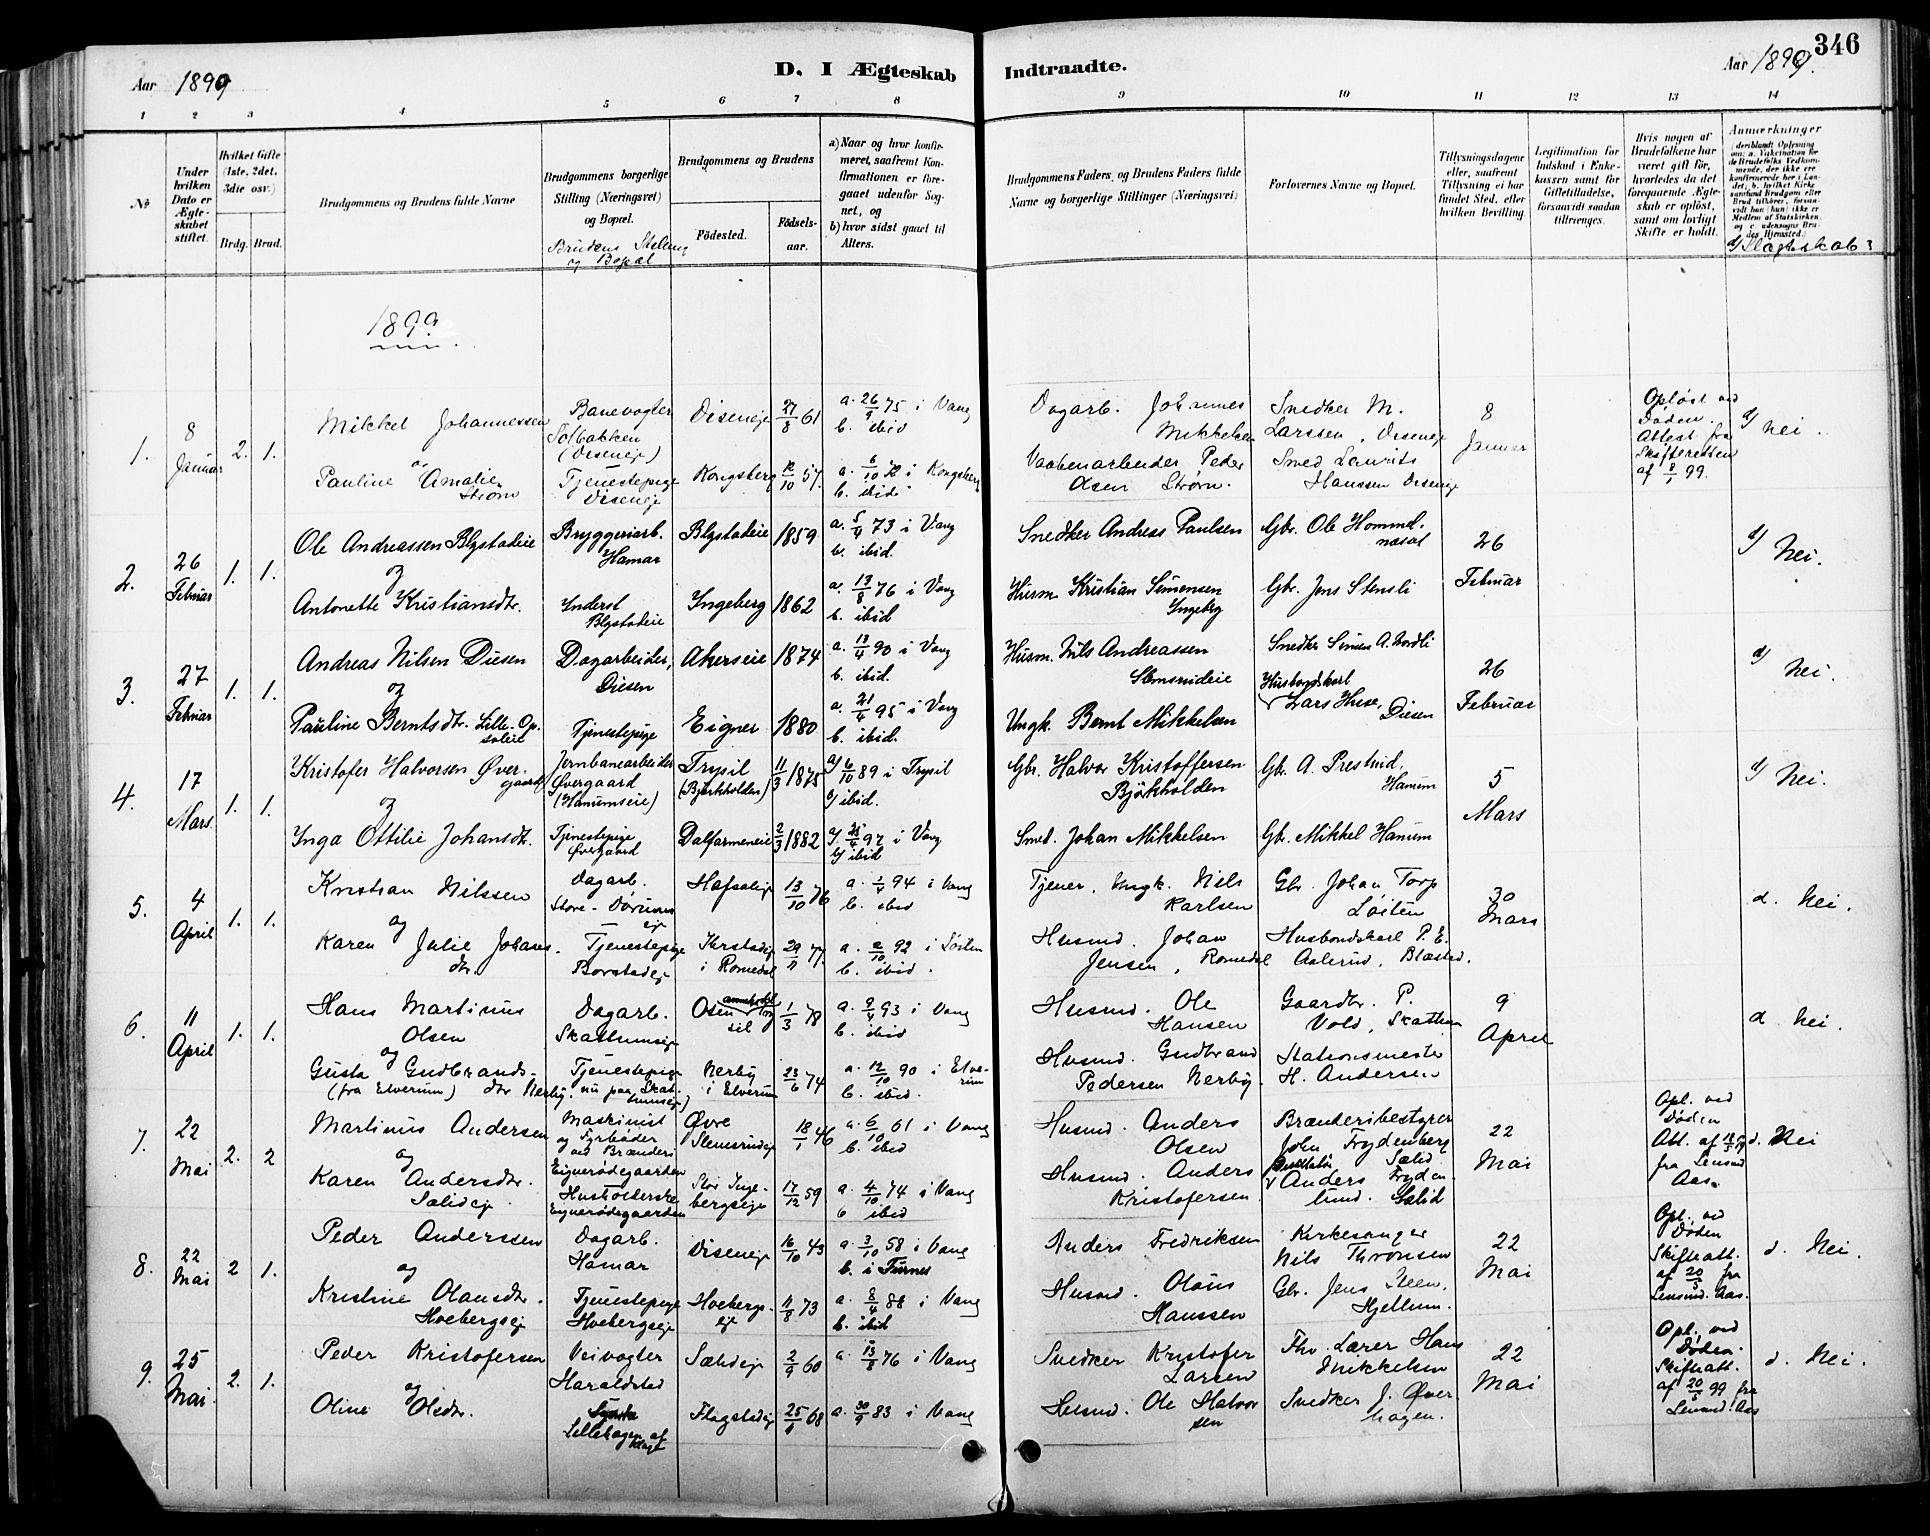 346
Aar 1899
D. I Ægteskab Indtraadte.
Aar 1899.
1 2 3 4 5 6 7 8 9 10 11 12 13 14
No
Under hvilken Dato er Ægteskabet stiftet.
Hvilket Gifte (1ste, 2det, 3die osv.)
Brdg. Brud.
Brudgommens og Brudens fulde Navne
Brudgommens borgerlige Stilling (Næringsvei) og Bopæl.
Brudens Stilling og Bopæl
Brudgommens og Brudens
Födested.
Födselsaar.
a) Naar og hvor konfirmeret, saafremt Konfirmationen er foregaaet udenfor Sognet, og
b) hvor sidst gaaet til Alters.
Brudgommens Faders, og Brudens Faders fulde Navne og borgerlige Stillinger (Næringsvei)
Forlovernes Navne og Bopæl.
Tillysningsdagene eller, saafremt Tillysning ei har fundet Sted, efter hvilken Bevilling.
Legitimation for Indskud i Enkekassen samt for Giftetilladelse, forsaavidt saadan tiltrænges.
Hvis nogen af Brudefolkene har været gift för, hvorledes da det foregaaende Ægteskab er oplöst, samt om lovligt Skifte er holdt.
Anmærkninger
d/ Slægtskab?
1899
1. 8 Januar 2. 1.
Mikkel Johannessen
og
Pauline Amalie Strøm
Banevogter Solbakken (Diseneje)
Tjenestepige Diseneje
Diseneje 27/8 61
Kongsberg 12/10 57.
a. 26/9 75 i Vang
b. ibid
a. 6/10 72 i Kongsberg
b. ibid
Dagarb. Johannes Mikkelsen
Vaabenarbeider Peder Olsen Strøm.
Snedker M. Larssen, Diseneje
Smed Laurits Hanssen Diseneje
8 Januar
Opløst ved Døden. Attest fra Skifteretten af 8/1 99.
d/ Nei.
2. 26 Februar 1. 1.
Ole Andreassen Blystadeie
og
Antonette Kristiansdtr.
Bryggeriarb. Hamar
Inderst Blystadeie
Blystadeie 1859
Ingeberg 1862
a. 5/4 73 i Vang
b. ibid.
a. 13/8 76 i Vang
b. ibid
Snedker Andreas Paulsen
Husm. Kristian Simensen Ingeberg
Gbr. Ole Hommelnæsset
Gbr. Jens Stensli
26 Februar
d/ Nei.
3. 27 Februar 1. 1.
Andreas Nilsen Diesen
og
Pauline Berntsdtr. Lille-Opsaleie
Dagarbeider, Diesen
Tjenestepige
Akerseie 1874
Eigner 1880
a. 13/4 90 i Vang
b. ibid.
a. 21/4 95 i Vang
b. ibid.
Husm. Nils Andreassen Slemsrudeie
Ungk. Bernt Mikkelsen
Snedker Simen A. Nordli
Husbondskarl Lars Huse, Diesen
26 Februar
d/ Nei.
4. 17 Mars 1. 1.
Kristofer Halvorsen Øvergaard
og
Inga Ottilie Johansdtr.
Jernbanearbeider Øvergaard (Hanumseie)
Tjenestepige Øvergaard
Trysil (Bjørkholden) 11/3 1875
Dalfarmeneie 2/3 1882
a/ 6/10 89 i Trysil
b/ ibid.
a/ 25/4 97 i Vang
b/ ibid
Gbr. Halvor Kristoffersen Bjökholden
Smed. Johan Mikkelsen
Gbr. A. Prestrud, Hanum
Gbr. Mikkel Hanum
5 Mars
d/ Nei.
5. 4 April 1. 1.
Kristian Nilssen
og
Karen Julie Johansdtr.
Dagarb. Store-
Tjenestepige Borstadeje
Hafsaleje 13/10 76
i Romedal 29/11 77.
a. 1/4 94 i Vang
b. ibid
a. 2/10 92 i Løiten
b. ibid.
Tjener, Ungk. Nils Karlsen
Husmd. Johan Jensen, Romedal
Gbr. Johan Torp Løiten
Husbondskarl P. E. Aalerud, Blæsted.
30 Mars
d. Nei.
6. 11 April 1. 1.
Hans Martinus Olsen
og
Gusta Gudbrandsdtr Nerby (fra Elverum)
Dagarb. Skattumseje
Tjenestepige nu paa Skattumseje
1/3 78
Nerby i Elverum 23/6 74
a. 9/4 93 i Vang
b. ibid
a. 12/10 90 i Elverum
b. ibid.
Husmd. Ole Hansen
Husmd. Gudbrand Pedersen Nerby.
Gaardbr. P. Vold, Skattum
Stationsmester H. Andersen
9 April
d Nei.
7. 22 Mai 2. 2
Martinus Andersen
og
Karen Andersdtr. Sælideje
Maskinist og Fyrbøder ved Brænderi Eignerødegaarden
Husholderske Eignerødegaarden
Øvre Slemsrudeje 18/1 46
Stor Ingebergseje 17/12 59
a. 6/10 61 i Vang
b. ibid
a. 4/10 74 i Vang
b ibid
Husmd. Anders Olsen
Husmd. Anders Kristofersen
Brænderibestyrer John Frydenberg Sælid
Anders Frydenlund. Sælid
22 Mai
Opl. ved Døden Att. af fra Lensmd Aas.
d. Nei
8. 22 Mai 2 1.
Peder Anderssen
og
Kristine Olausdtr. Hoebergseje
Dagarb. Hamar
Tjenestepige Hoebergseje
Diseneje 16/10 43
Hoebergseje 11/8 73
a. 3/10 58 i Vang
b. i Furnes
a. 8/4 88 i Vang
b. ibid
Anders Fredriksen
Husmd. Olaus Hanssen
Kirkesanger Nils Thrønsen
Gbr. Jens Steen, Hjellum.
22 Mai
Opl. ved Døden Skifteatt. af 20/5 fra Lensmd. Aas.
d. Nei.
9. 25 Mai 2. 1.
Peder Kristofersen
og
Oline Olsdtr.
Veivogter Haraldstad
Lillehagen af
Sælideje 2/9 60
Flagstadeje 25/4 68
a. 13/8 76 i Vang
a. 30/9 83 i Vang
Snedker Kristofer Larsen
Husmd. Ole Halvorsen
Fhv. Lærer Hans Mikkelsen
Snedker J. Øverhagen.
22 Mai
Opl. ved Døden. Skifteatt. af 20/5 99 fra Lensmd. Aas
d. Nei.